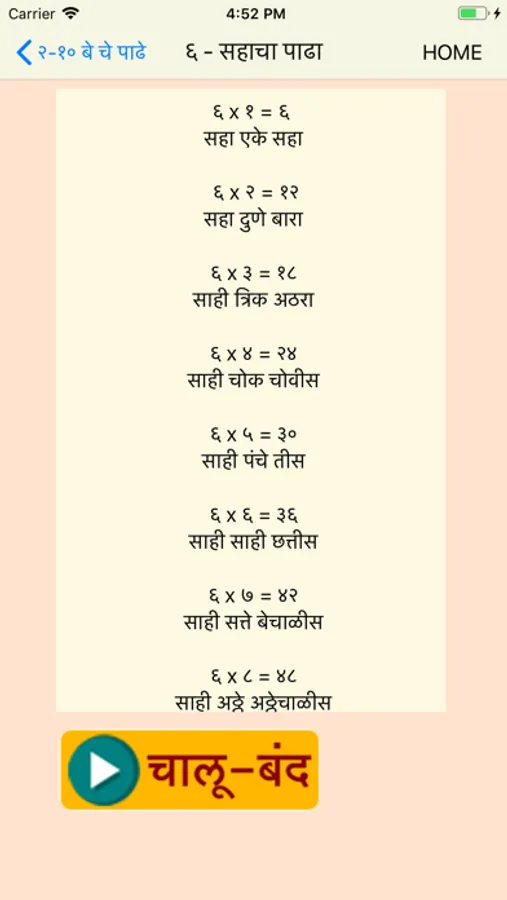 Carrier 4:52 PM
२-१० बे चे पाढे ६ - सहाचा पाढा HOME
६ x १ = ६
सहा एके सहा
६ x २ = १२
सहा दुणे बारा
६ x ३ = १८
साही त्रिक अठरा
६ x ४ = २४
साही चोक चोवीस
६ x ५ = ३०
साही पंचे तीस
६ x ६ = ३६
साही साही छत्तीस
६ x ७ = ४२
साही सत्ते बेचाळीस
६ x ८ = ४८
साही अठ्ठे अठ्ठेचाळीस
चालू-बंद